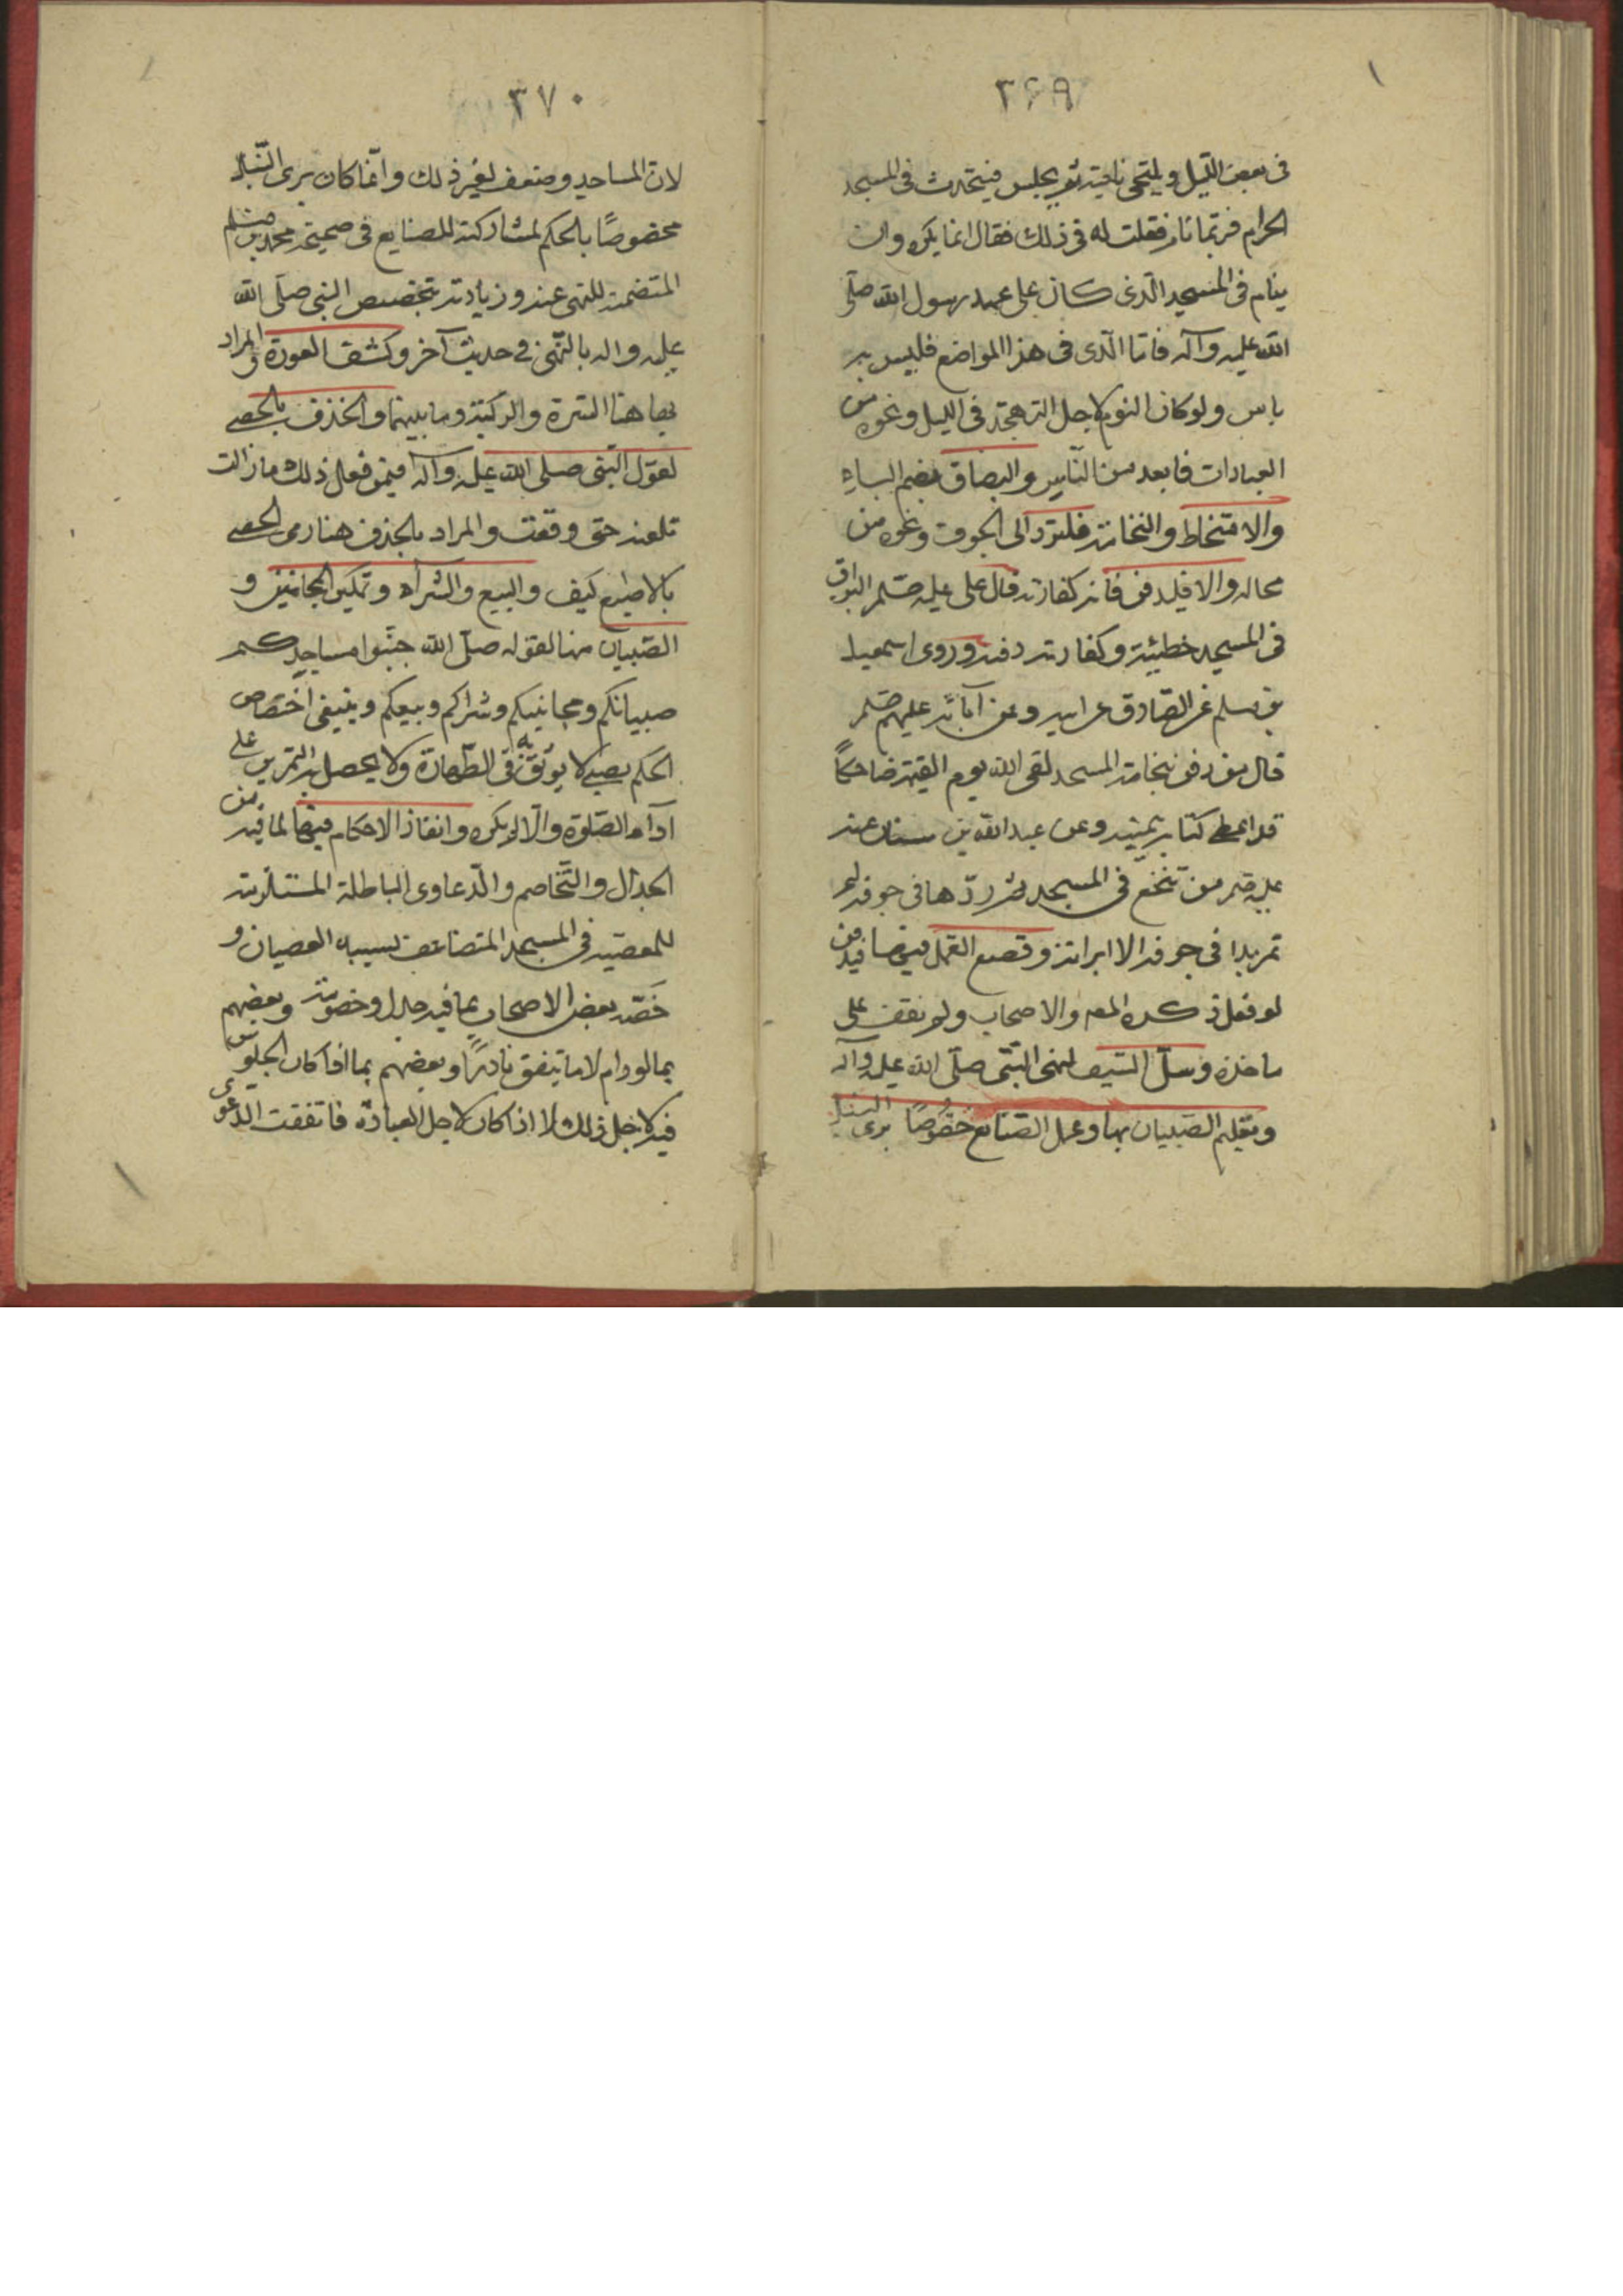 ٣٦٩
فی بعض اللّیل ویتنحی ناحیته ثم یجلس فیتحدث فی المسجد
الحرام فربّما نام فقلت له فی ذلك فقال انما یكره وان
ینام فی المسجد الّذی كان علی عهد رسول الله صلّی
الله علیه وآله فامّا الّذی فی هذا المواضع فلیس به
باس ولو كان النوم لاجل التهجّد فی اللیل ونحوه من
العبادات فابعد من النّاس والبصاق بضم الباءِ
والامتخاط والنخامة فلتردّ الی الجوف ونحوه من
محاله والا فلیدفن فانه كفارته قال علی علیه صلم البزاق
فی المسجد خطیئته وكفارته دفنه وروی اسمعیل
بن مسلم عن الصّادق عن ابیه وعن آبائه علیهم صلم
قال من دفن نخامة المسجد لقی الله یوم القیٰمة ضاحكاً
قد اعطی كتابه بیمینه وعن عبد الله بن سنان عنه
علیه صلم من تنخّع فی المسجد ثم ردّها فی جوفه لم
تمر بداء فی جوفه الا ابرأته وقصع القمل فیها فیدفن
لو فعل ذكره المص والاصحاب ولم نقف علی
ماخذه وسلّ السّیف لنهی النّبی صلّی الله علیه وآله
وتعلیم الصّبیان بها وعمل الصّنایع خصُوصاً بری النبل
٣٧٠
لان المساجد وضعت لغیر ذلك وانّما كان بری النّبل
مخصوصًا بالحكم لمشاركته للصنایع فی صحیحة محمد بن مسلم
المتضمنه للنهی عنه وزیادته بتخصیص النبی صلّی الله
علیه واله بالنّهی فی حدیث آخر وكشف العورة والمراد
بها هنا السّرة والركبة وما بینهما والخذف بالحصی
لقول النّبی صلی الله علیه وآله فیمن فعل ذلك ما زالت
تلعنه حتی وقعت والمراد بالخذف هنا رمی الحصی
بالاصابع كیف والبیع والشّراء وتمكین المجانین و
الصّبیان منها لقوله صلّی الله جنّبوا مساجدكم
صبیانكم ومجانینكم وشراءكم وبیعكم وینبغی اختصاص
الحكم بصبی لا یوثق به فی الطّهارة ولا یحصل به التمرین علی
اداء الصّلوة والّا لم یكره وانفاذ الاحكام فیها لما فیه من
الجدال والتّخاصم والدّعاوی الباطلة المستلزمة
للمعصیه فی المسجد المتضاعف بسببه العصیان و
خصّه بعض الاصحاب بما فیه جدل وخصومة وبعضهم
بما لو دام لا ما یتفق نادرًا وبعضهم بما اذا كان الجلوس
فیه لاجل ذلك لا اذا كان لاجل العبادة فاتفقت الدّعوی